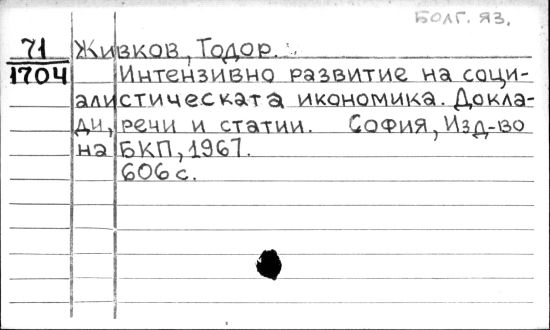 Болг. яз.
71 Живков, Тодор.
1704 Интензивно развитие на соци-
алистическата икономика. Докла-
ди, речи и статии. София, Изд-во
на БКП, 1967.
606 с.